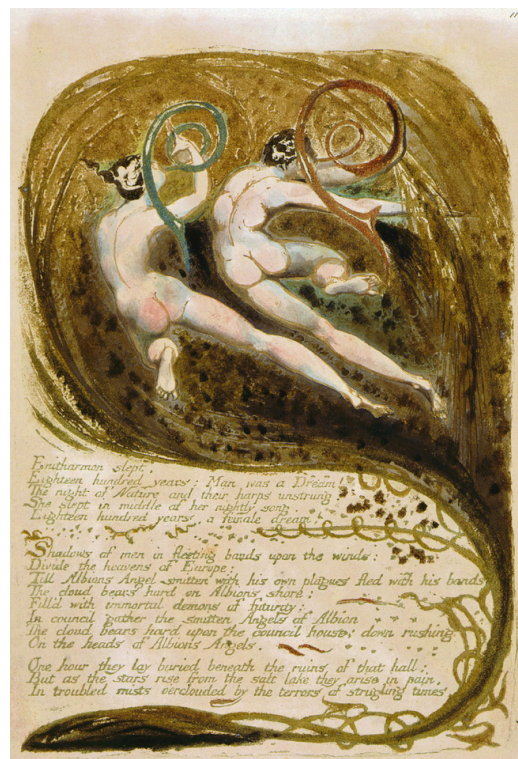 11
Enitharmon slept,
Eighteen hundred years: Man was a Dream!
The night of Nature and their harps unstrung:
She slept in middle of her nightly song,
Eighteen hundred years, a female dream!
Shadows of men in fleeting bands upon the winds:
Divide the heavens of Europe:
Till Albions Angel smitten with his own plagues fled with his bands
The cloud bears hard on Albions shore:
Filld with immortal demons of futurity:
In council gather the smitten Angels of Albion
The cloud bears hard upon the council house; down rushing
On the heads of Albions Angels.
One hour they lay buried beneath the ruins of that hall;
But as the stars rise from the salt lake they arise in pain,
In troubled mists oerclouded by the terrors of strugling times.